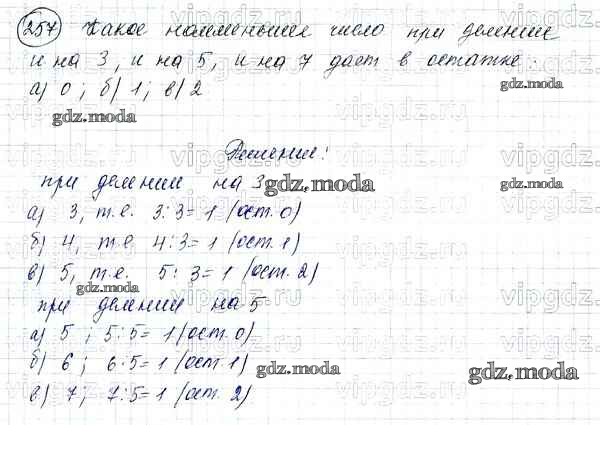 257 Какое наименьшее число при делении
и на 3, и на 5, и на 7 дает в остатке:
а) 0; б) 1; в) 2
gdz.moda
gdz.moda
Решение:
при делении на 3
gdz.moda
gdz.moda
а) 3, т.е. 3:3=1 (ост. 0)
б) 4, т.е. 4:3=1 (ост. 1)
в) 5, т.е. 5:3=1 (ост. 2)
gdz.moda
при делении на 5
а) 5; 5:5=1 (ост. 0)
б) 6; 6:5=1 (ост. 1)
gdz.moda
gdz.moda
в) 7; 7:5=1 (ост. 2)
vipgdz.ru